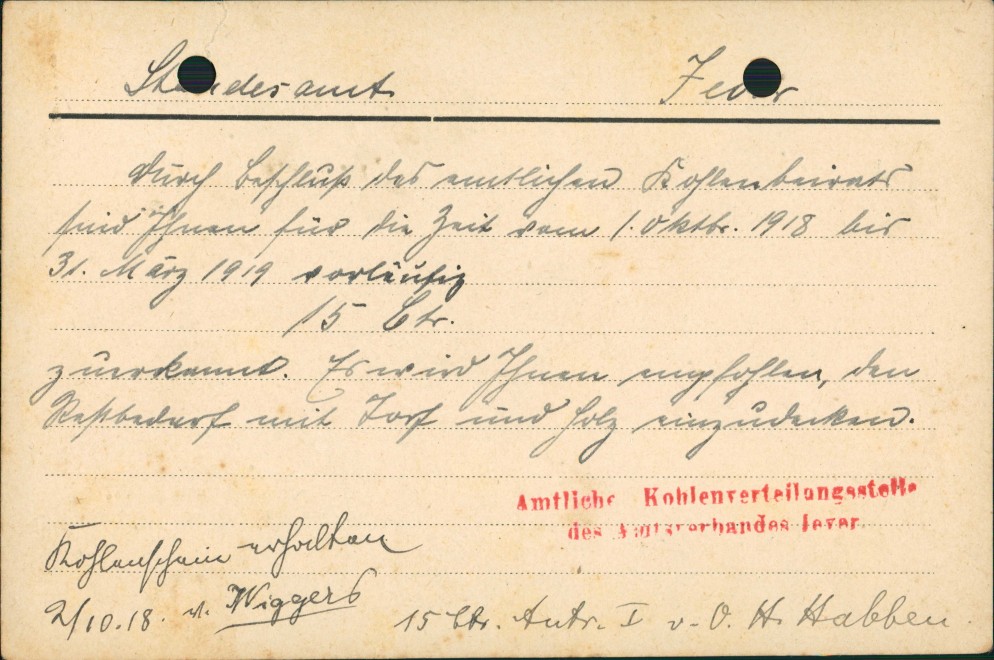 Standesamt Jever
Durch Beschluß des amtlichen Kohlenbeirats
sind Ihnen für die Zeit vom 1. Oktbr. 1918 bis
31. März 1919 vorläufig
15 Ctr.
zuerkannt. Es wird Ihnen empfohlen, den
Restbedarf mit Torf und Holz einzudecken.
Amtliche Kohlenverteilungsstelle
des Amtsverbandes Jever.
Kohlenschein erhalten
2/10.18. v. Wiggers
15 Ctr. Antr. I v. O. H. Habben.